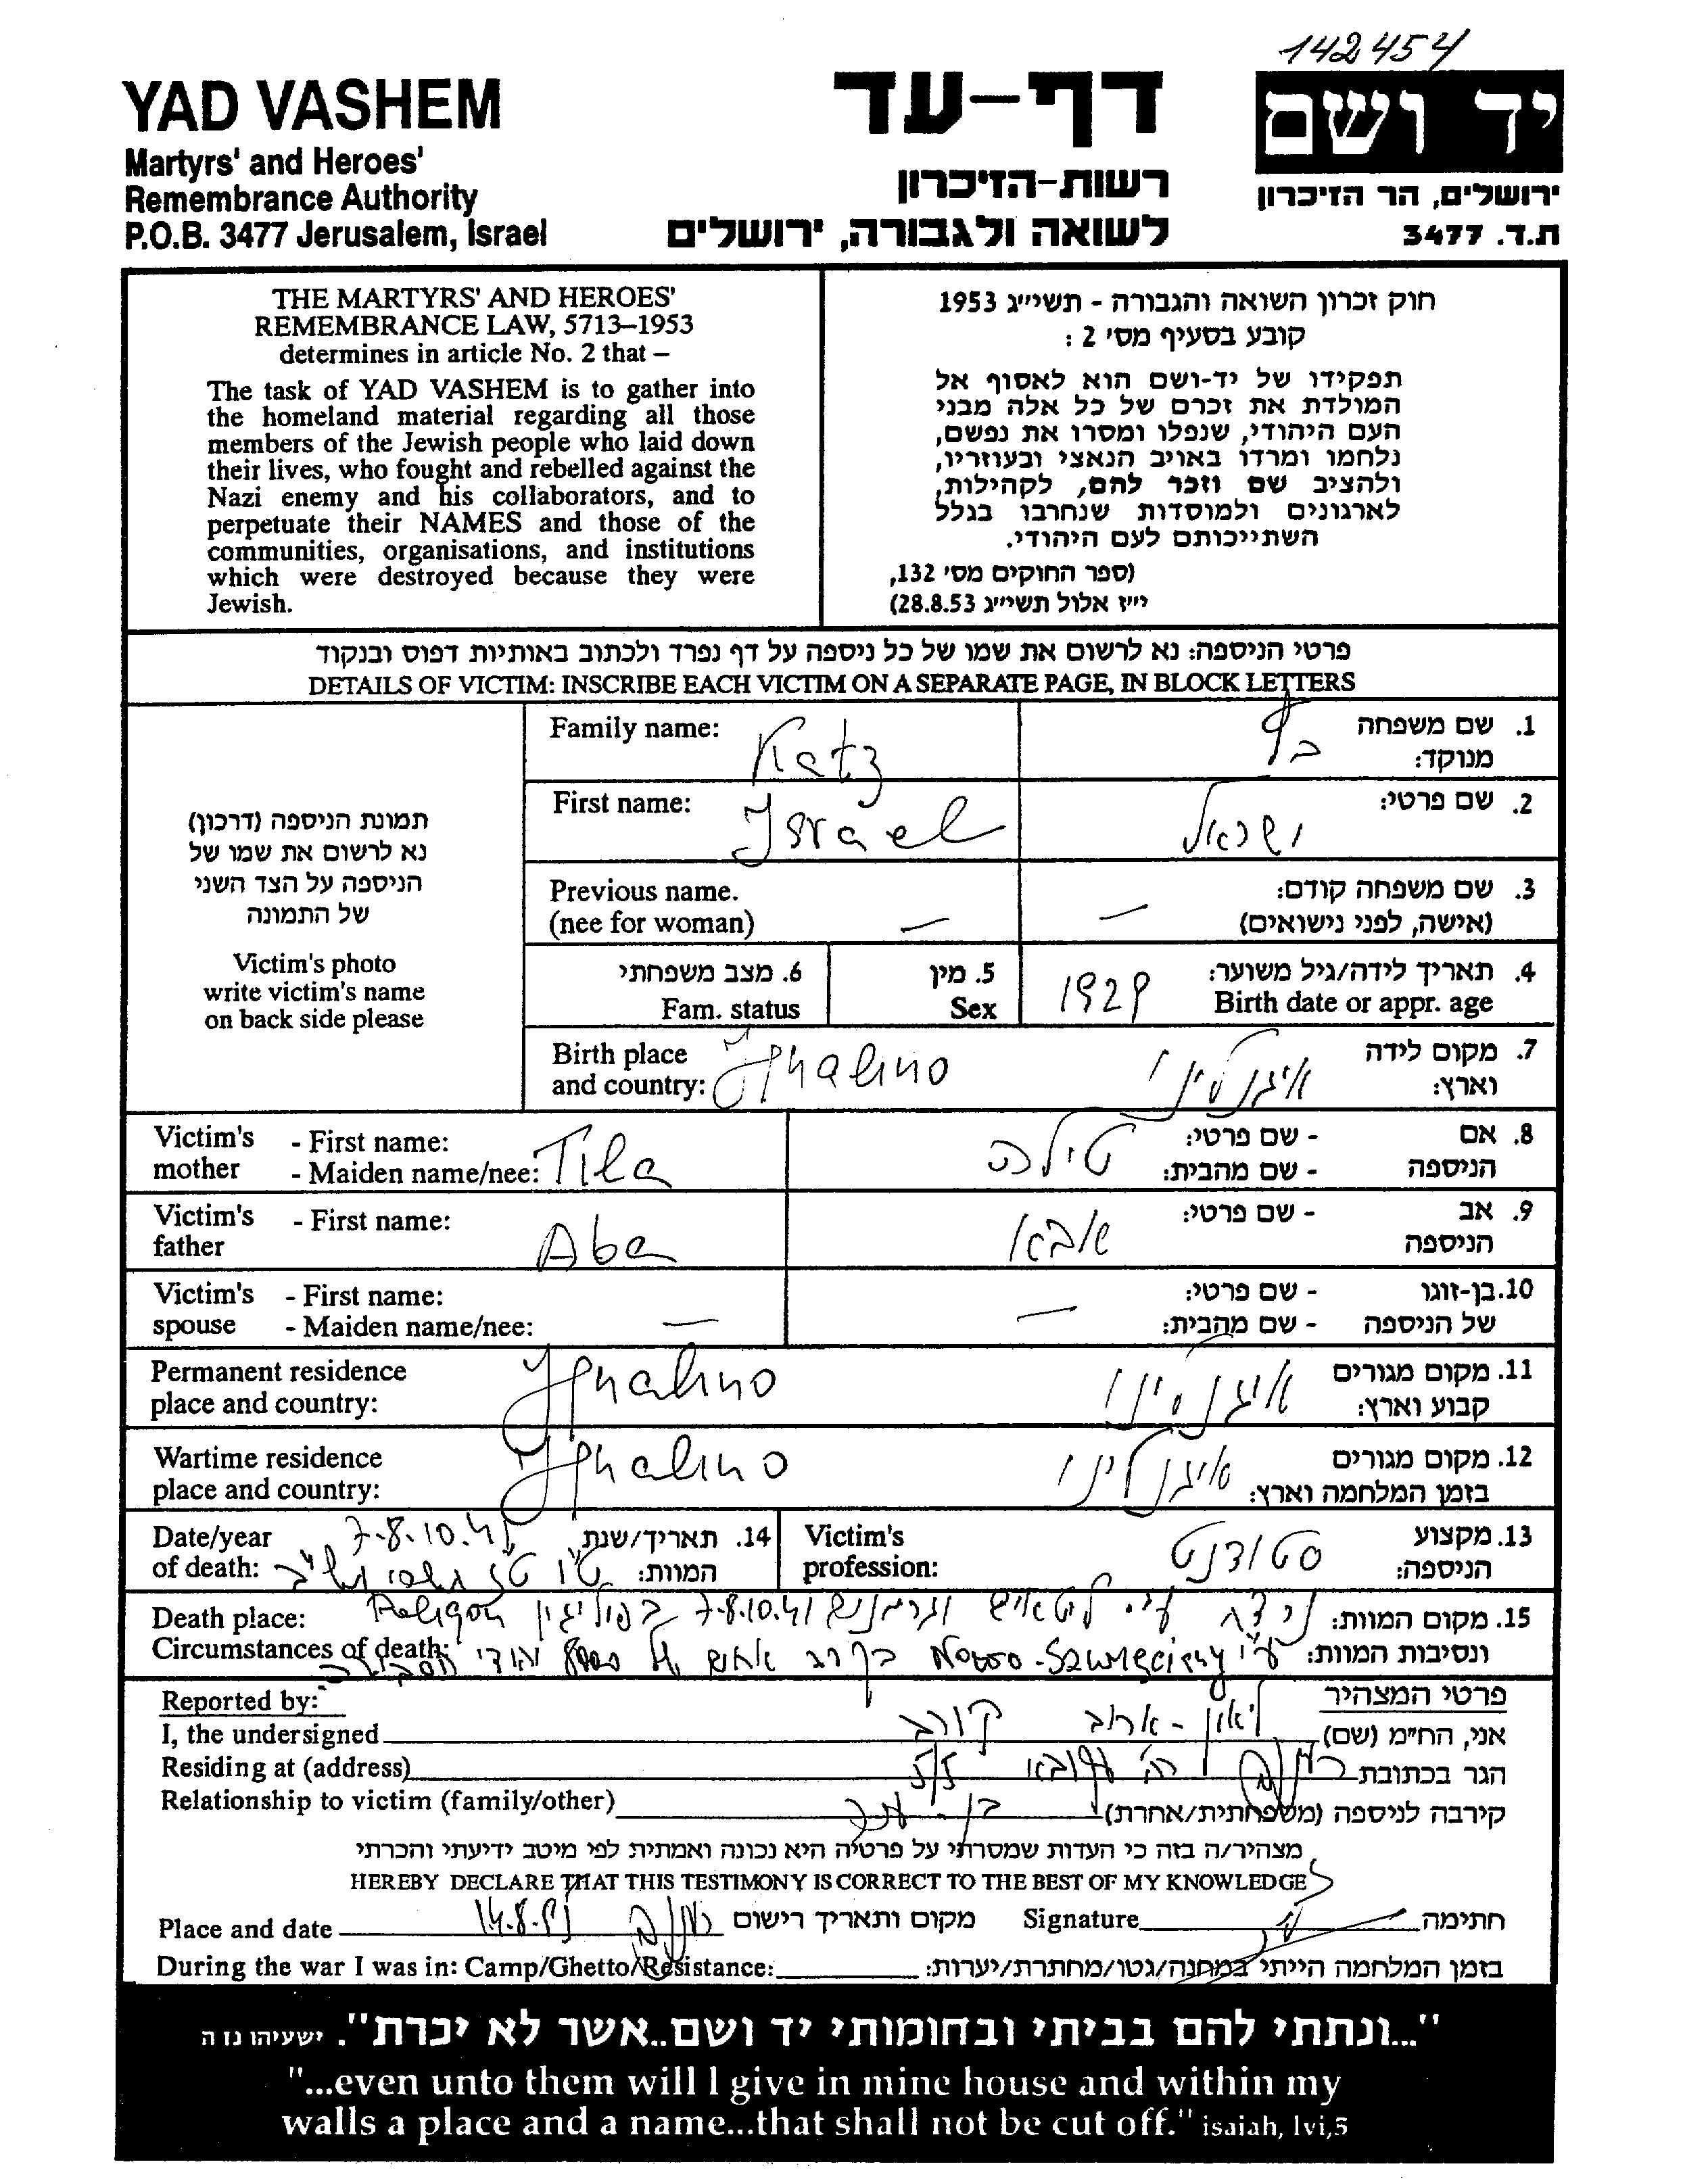 142454
YAD VASHEM
Martyrs' and Heroes'
Remembrance Authority
P.O.B. 3477 Jerusalem, Israel
דף-עד
רשות-הזיכרון
לשואה ולגבורה, ירושלים
יד ושם
ירושלים, הר הזיכרון
ת.ד. 3477
THE MARTYRS' AND HEROES'
REMEMBRANCE LAW, 5713–1953
determines in article No. 2 that –
The task of YAD VASHEM is to gather into
the homeland material regarding all those
members of the Jewish people who laid down
their lives, who fought and rebelled against the
Nazi enemy and his collaborators, and to
perpetuate their NAMES and those of the
communities, organisations, and institutions
which were destroyed because they were
Jewish.
חוק זכרון השואה והגבורה - תשי״ג 1953
קובע בסעיף מס׳ 2 :
תפקידו של יד-ושם הוא לאסוף אל
המולדת את זכרם של כל אלה מבני
העם היהודי, שנפלו ומסרו את נפשם,
נלחמו ומרדו באויב הנאצי ובעוזריו,
ולהציב שם וזכר להם, לקהילות,
לארגונים ולמוסדות שנחרבו בגלל
השתייכותם לעם היהודי.
(ספר החוקים מס׳ 132,
י״ז אלול תשי״ג 28.8.53)
פרטי הניספה: נא לרשום את שמו של כל ניספה על דף נפרד ולכתוב באותיות דפוס ובנקוד
DETAILS OF VICTIM: INSCRIBE EACH VICTIM ON A SEPARATE PAGE, IN BLOCK LETTERS
תמונת הניספה (דרכון)
נא לרשום את שמו של
הניספה על הצד השני
של התמונה
Victim's photo
write victim's name
on back side please
Family name: Katz
1. שם משפחה מנוקד: כץ
First name: Israel
2. שם פרטי: ישראל
Previous name. (nee for woman) —
3. שם משפחה קודם: (אישה, לפני נישואים) —
6. מצב משפחתי Fam. status
5. מין Sex
4. תאריך לידה/גיל משוער: Birth date or appr. age 1929
Birth place and country: Ignalino
7. מקום לידה וארץ: איגנלינו
Victim's mother - First name: - Maiden name/nee: Tila
8. אם הניספה - שם פרטי: - שם מהבית: טילה
Victim's father - First name: Aba
9. אב הניספה - שם פרטי: אבא
Victim's spouse - First name: - Maiden name/nee: —
10. בן-זוגו של הניספה - שם פרטי: - שם מהבית: —
Permanent residence place and country: Ignalino
11. מקום מגורים קבוע וארץ: איגנלינו
Wartime residence place and country: Ignalino
12. מקום מגורים בזמן המלחמה וארץ: איגנלינו
Date/year of death: 7-8.10.41
14. תאריך/שנת המוות:
Victim's profession:
13. מקצוע הניספה: סטודנט
Death place:
Circumstances of death:
15. מקום המוות: ונסיבות המוות: נרצח ע״י ליטאים וגרמנים 7-8.10.41 בפוליגון Poligon
ע״י Nowo-Sweciany
Reported by:
פרטי המצהיר
I, the undersigned
אני, הח״מ (שם)
Residing at (address) 5/5
הגר בכתובת
Relationship to victim (family/other) בן-דוד
קירבה לניספה (משפחתית/אחרת)
מצהיר/ה בזה כי העדות שמסרתי על פרטיה היא נכונה ואמתית לפי מיטב ידיעתי והכרתי
HEREBY DECLARE THAT THIS TESTIMONY IS CORRECT TO THE BEST OF MY KNOWLEDGE
Place and date מקום ותאריך רישום
Signature חתימה
During the war I was in: Camp/Ghetto/Resistance: בזמן המלחמה הייתי במחנה/גטו/מחתרת/יערות:
"...ונתתי להם בביתי ובחומותי יד ושם..אשר לא יכרת". ישעיהו נו ה
"...even unto them will I give in mine house and within my
walls a place and a name...that shall not be cut off." isaiah, lvi,5